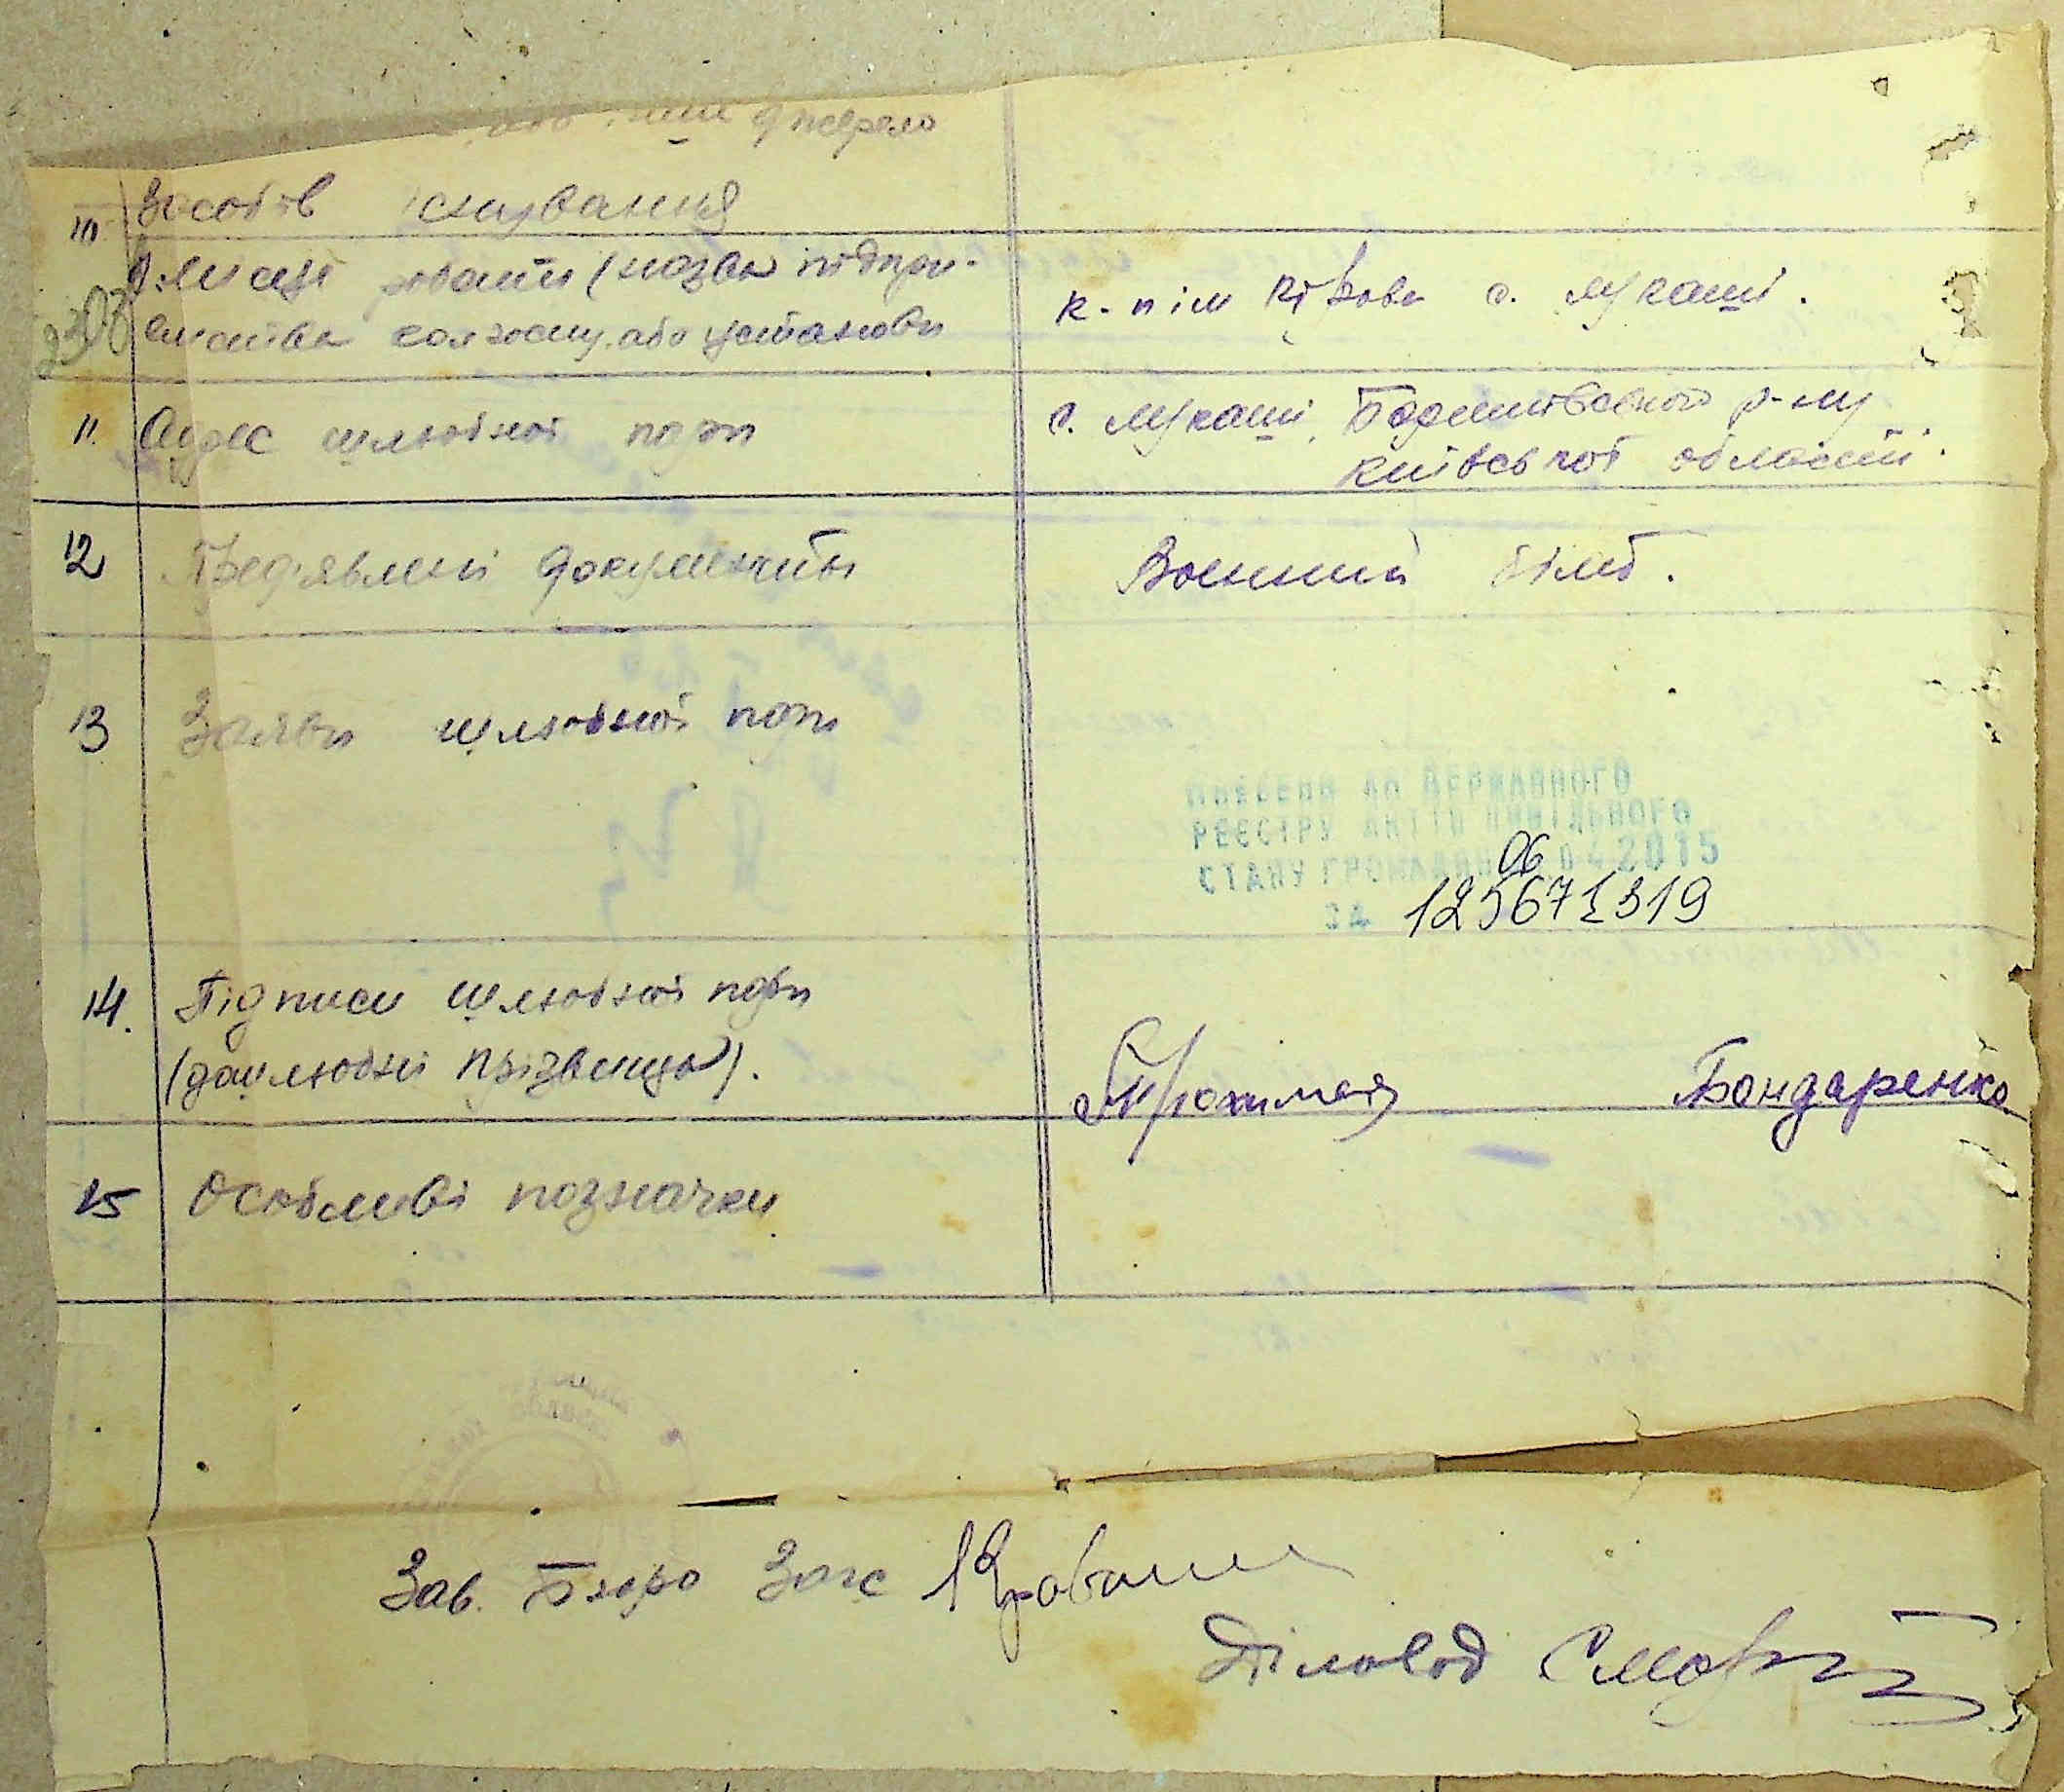 джерело
засобів існування
10 Місце роботи (назва підпри-
ємства колгоспу або установи
к-п ім Кірова с. Мукаші.
11. Адрес шлюбної пари
с. Мукаші, Баришівського р-ну
Київської області.
12 Предявлені документи
Воєнний білет.
13 Заяви шлюбної пари
ВНЕСЕНО ДО ДЕРЖАВНОГО
РЕЄСТРУ АКТІВ ЦИВІЛЬНОГО
СТАНУ ГРОМАДЯН 06 04 2015
ЗА
14. Підписи шлюбної пари
(дошлюбні прізвища).
Бондаренко
15 Особливі позначки
Зав. Бюро Загс
Діловод